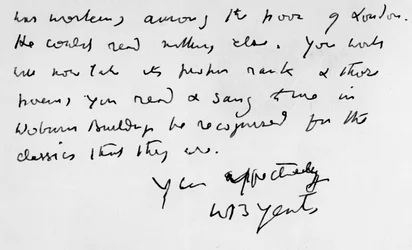 was working among the poor of London.
He could read nothing else. Your work
will now take its proper rank & those
poems you read & sang to me in
Woburn Buildings be recognised for the
classics that they are.
Yours affectionately
WB Yeats